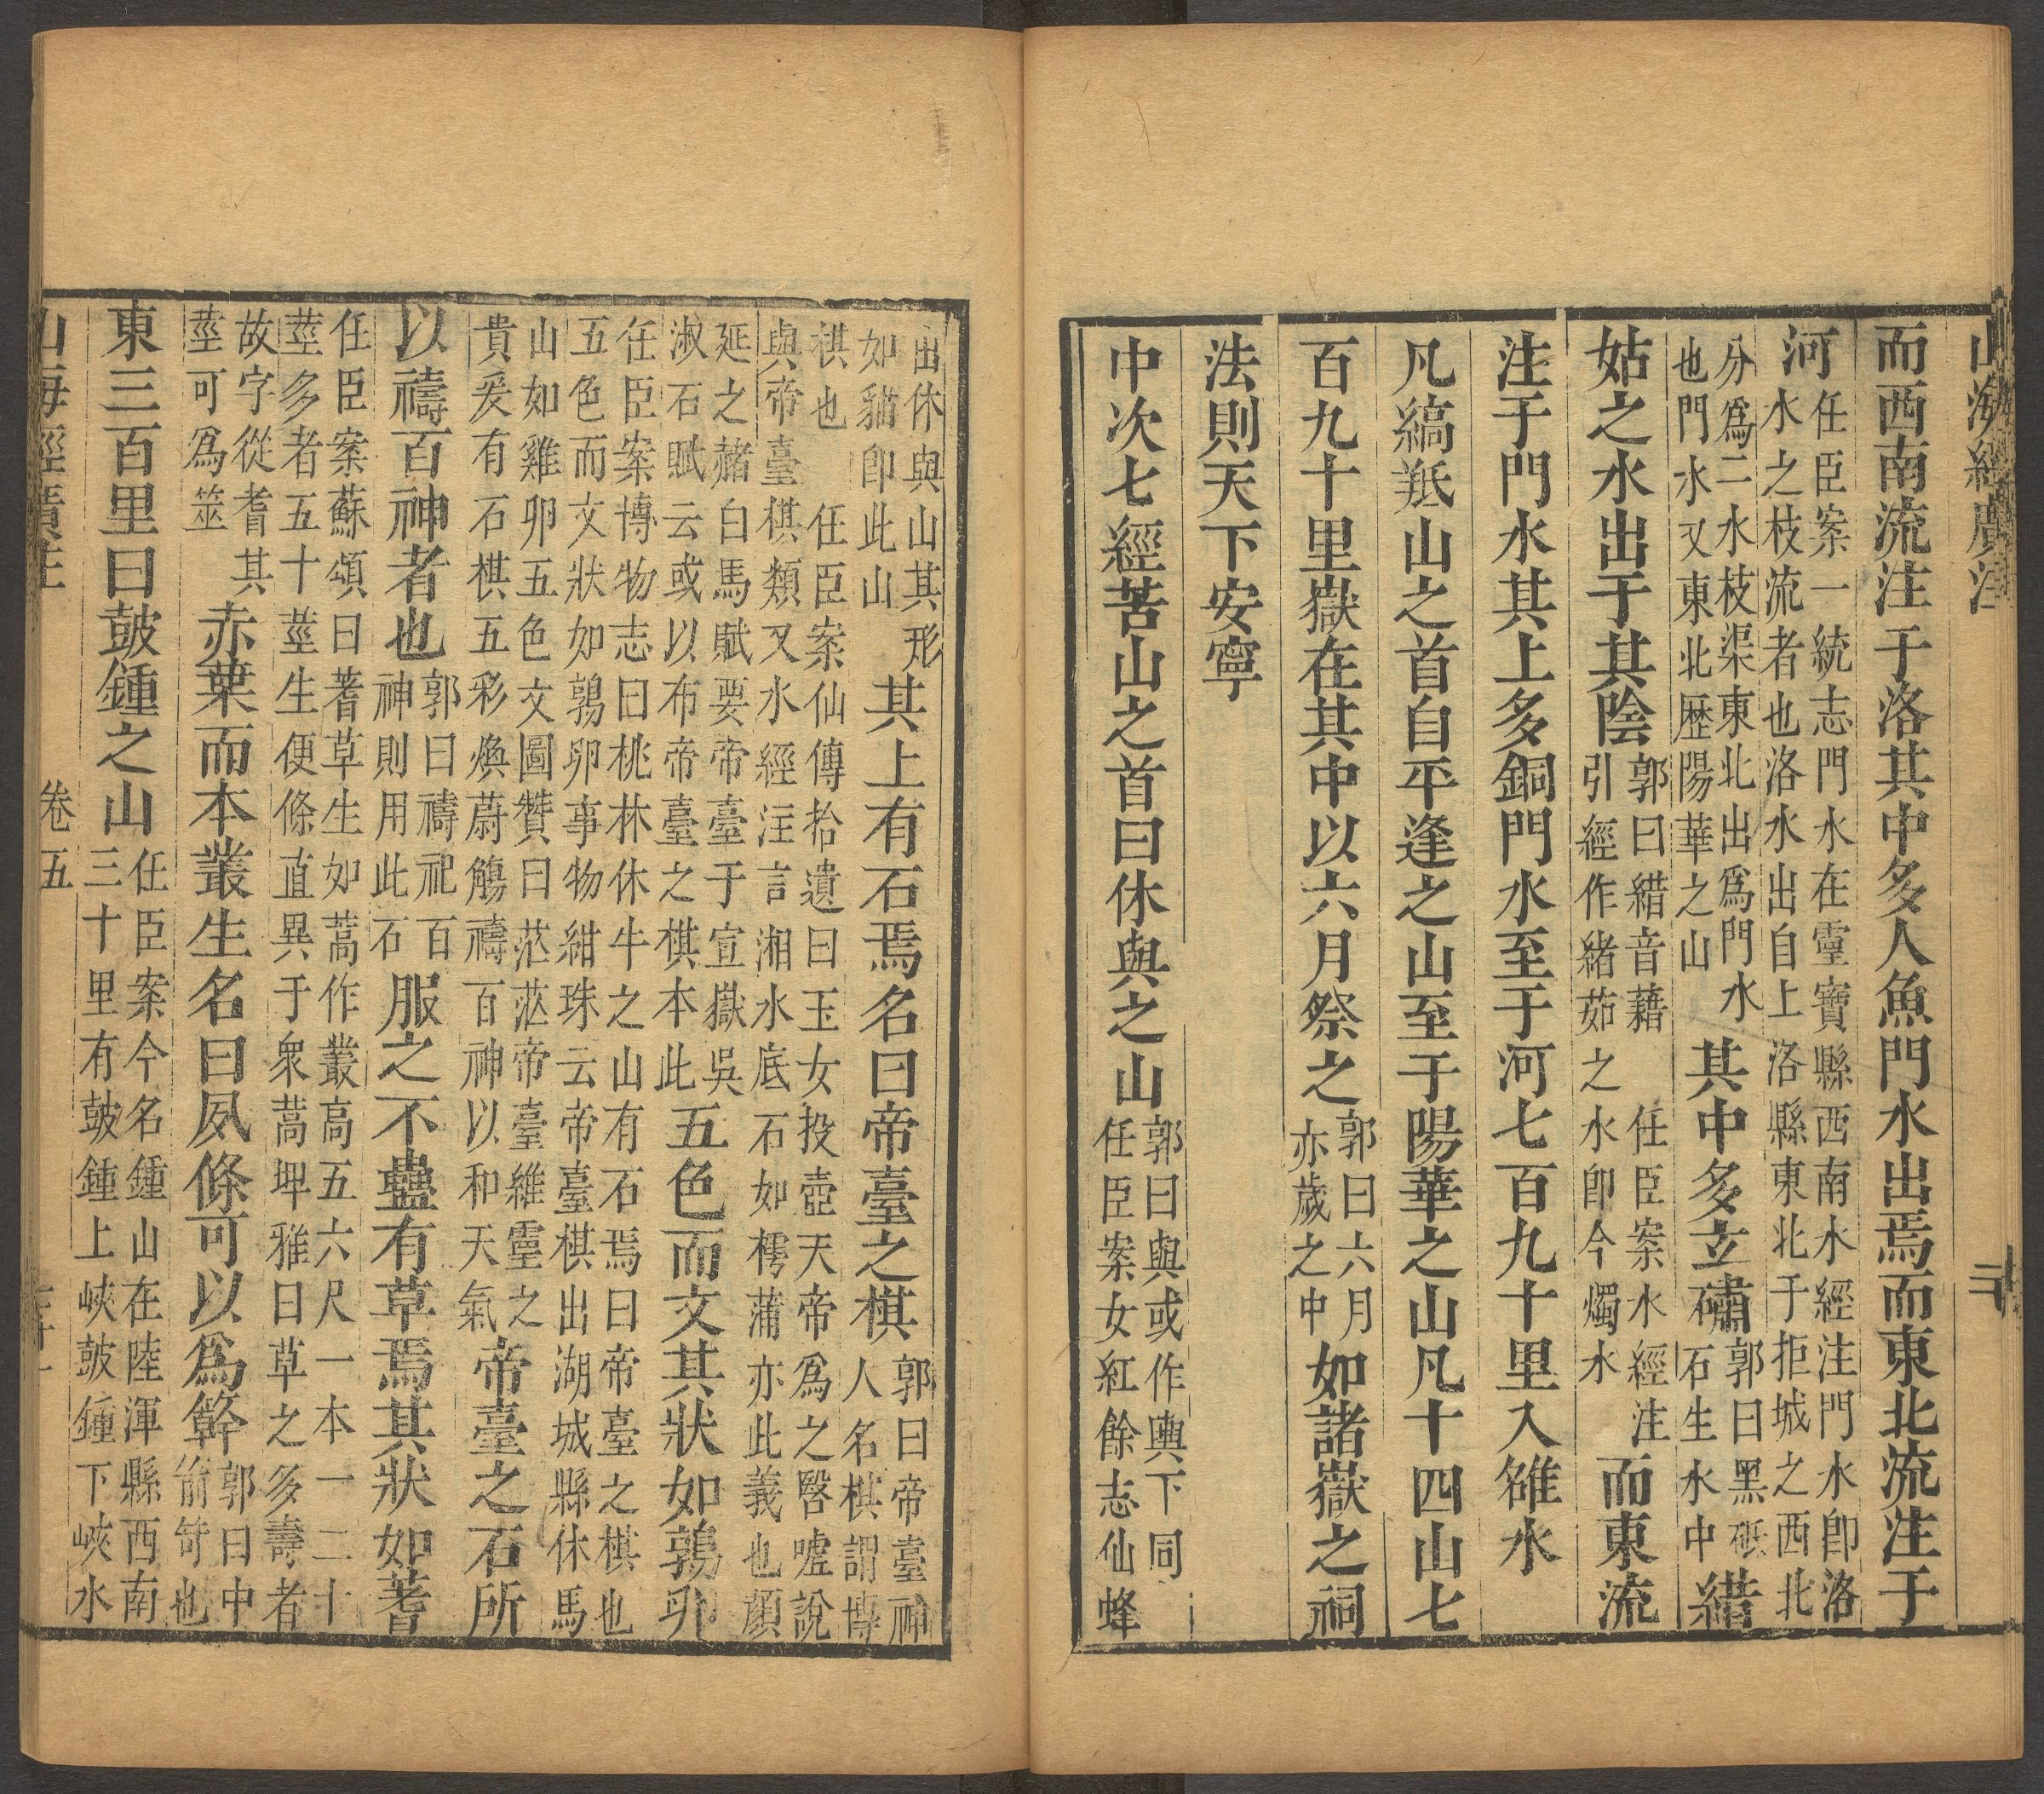 山海經廣注
而西南流注于洛其中多人魚門水出焉而東北流注于
河任臣案一統志門水在靈寶縣西南水經注門水卽洛水之枝流者也洛水出自上洛縣東北于拒城之西北
分爲二水枝渠東北出爲門水也門水又東北歷陽華之山其中多玄䃤郭曰黑砥石生水中𦁎
姑之水出于其陰郭曰𦁎音藉 任臣案水經注引經作緒茹之水卽今燭水而東流
注于門水其上多銅門水至于河七百九十里入雒水
凡縞羝山之首自平逢之山至于陽華之山凡十四山七
百九十里嶽在其中以六月祭之郭曰六月亦歲之中如諸嶽之祠
法則天下安寧
中次七經苦山之首曰休與之山郭曰與或作輿下同 任臣案女紅餘志仙蜂
出休與山其形如貓卽此山其上有石焉名曰帝臺之棋郭曰帝臺神人名棋謂博
棋也 任臣案仙傳拾遺曰玉女投壺天帝爲之噓說與帝臺棋類又水經注言湘水底石如樗蒲亦此義也顔
延之赭白馬賦要帝臺于宣嶽吳淑石賦云或以布帝臺之棋本此五色而文其狀如鶉卵
任臣案博物志曰桃林休牛之山有石焉曰帝臺之棋也五色而文狀如鶉卵事物紺珠云帝臺棋出湖城縣休馬
山如雞卵五色文圖贊曰茫茫帝臺維靈之貴爰有石棋五彩煥蔚觴禱百神以和天氣帝臺之石所
以禱百神者也郭曰禱祀百神則用此石服之不蠱有草焉其狀如蓍
任臣案蘇頌曰蓍草生如蒿作叢高五六尺一本一二十莖多者五十莖生便條直異于衆蒿埤雅曰草之多壽者
故字從耆其莖可爲筮赤葉而本叢生名曰夙條可以爲簳郭曰中箭笴也
東三百里曰鼓鍾之山任臣案今名鍾山在陸渾縣西南三十里有鼓鍾上峽鼓鍾下峽水
山海經廣注 卷五